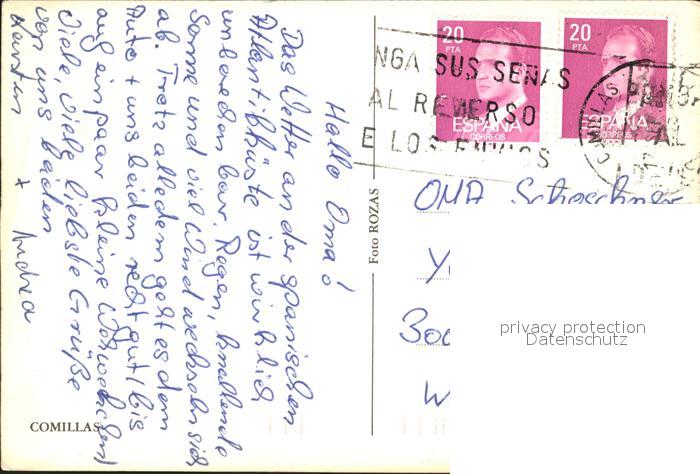 Hallo Oma!
Das Wetter an der spanischen
Atlantikküste ist wirklich
unberechenbar. Regen, knallende
Sonne und viel Wind wechseln sich
ab. Trotz alledem geht es dem
Auto + uns beiden recht gut (bis
auf ein paar kleine Wehwehchen)
Viele viele liebste Grüße
von uns beiden
Kerstin + Andrea
COMILLAS
Foto ROZAS
20
PTA
ESPAÑA
CORREOS
20
PTA
ESPAÑA
CORREOS
NGA SUS SEÑAS
AL REVERSO
E LOS ENVIOS
OMA Schoechner
300
W
privacy protection
Datenschutz